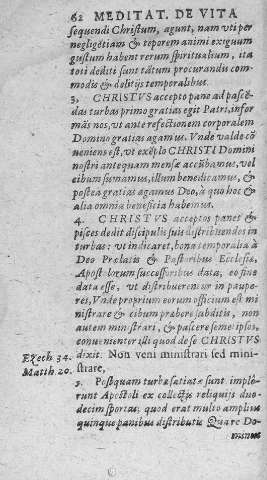 62 MEDITAT. DE VITA
sequendi Christum, agunt, nam vti per
negligētiam & teporem animi exiguum
gustum habent rerum spiritualium, ita
toti dediti sunt tātum procurandis com-
modis & delitijs temporalibus.
3. CHRISTVS accepto pane ad pascē-
das turbas primo gratias egit Patri, infor
mās nos, vt ante refectionem corporalem
Domino gratias agamus. Vnde valde cō
ueniens est, vt exēplo CHRISTI Domini
nostri antequam mensæ accūbamus, vel
cibum sumamus, illum benedicamus, &
postea gratias agamus Deo, à quo hoc &
alia omnia beneficia habemus.
4. CHRISTVS acceptos panes &
pisces dedit discipulis suis distribuendos in
turbas: vt indicaret, bona temporalia à
Deo Prælatis & Pastoribus Ecclesiæ,
Apostolorum successoribus data, eo fine
data esse, vt distribuerentur in paupe-
res, Vnde proprium eorum officium est mi
nistrare & cibum præbere subditis, non
autem ministrari, & pascere semetipsos,
conuenienter illi quod de se CHRISTVS
dixit. Non veni ministrari sed mini-
strare,
Ezech 34.
Matth 20.
5. Postquam turbæ satiatæ sunt implē-
runt Apostoli ex collectis reliquijs duo-
decim sportas; quod erat multo amplius
quinque panibus distributis Quare Do-
minus